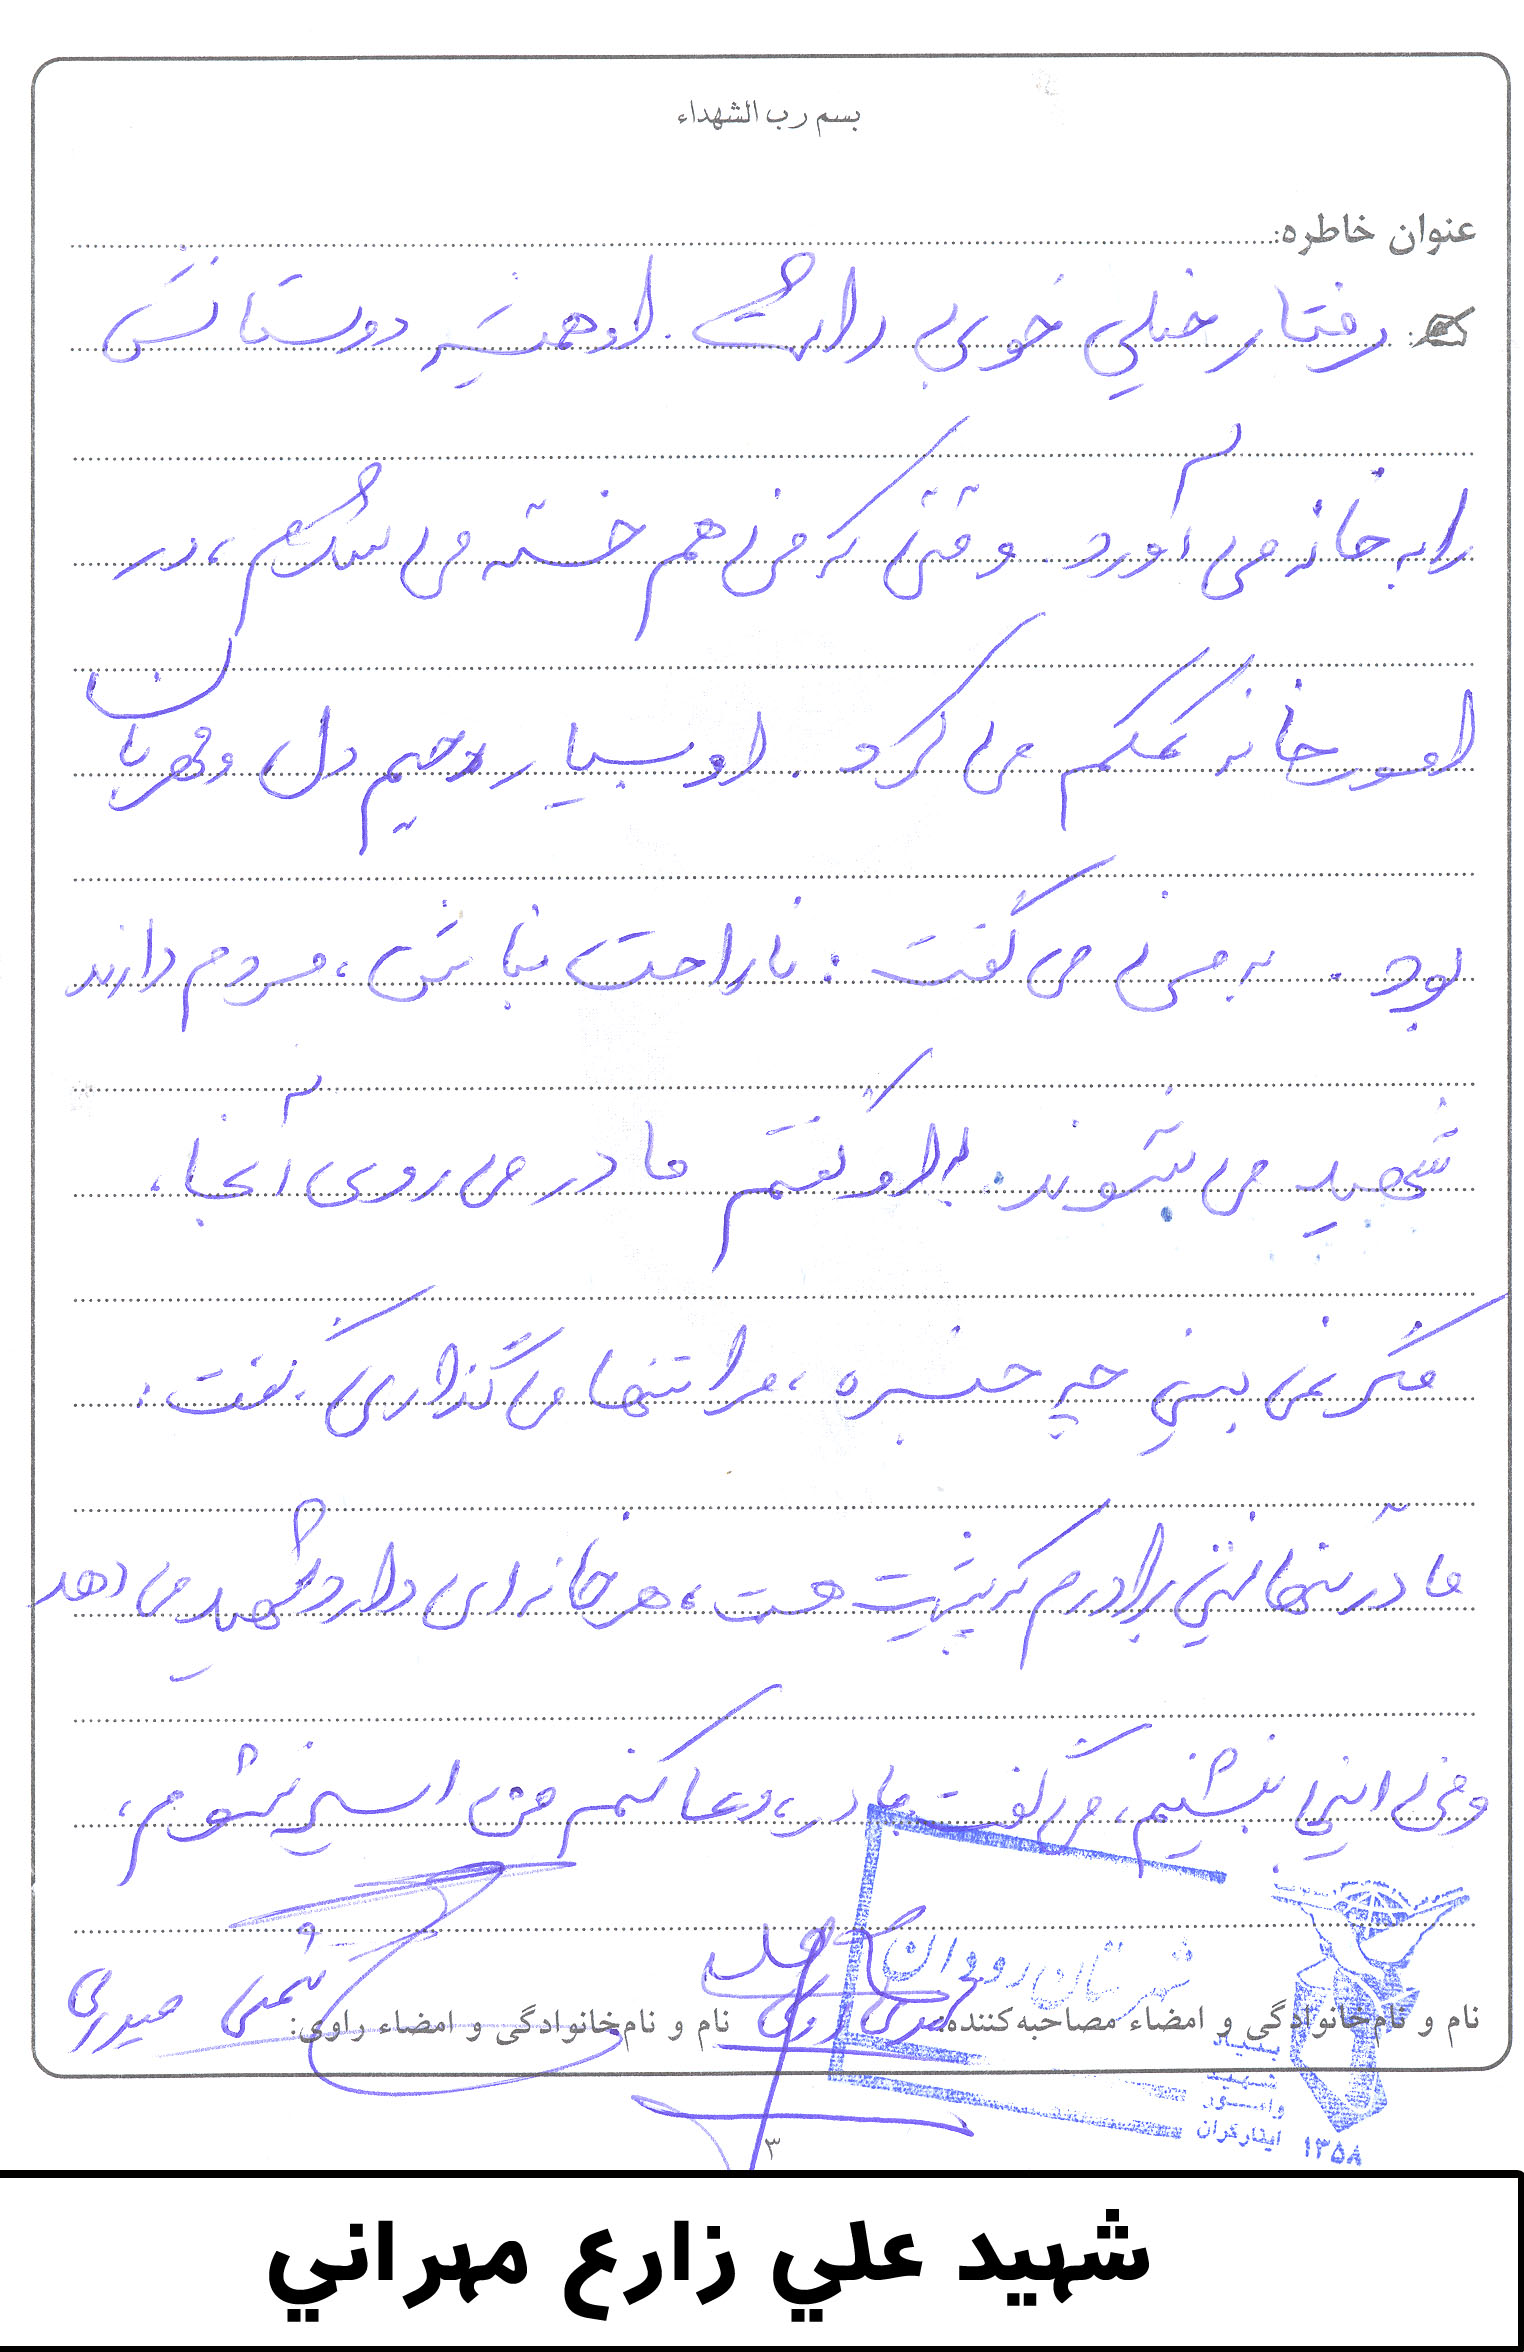 بسم رب الشهداء
عنوان خاطره:
رفتار خیلی خوبی داشت. او همیشه دوستانش
را به خانه می آورد وقتی که من هم خسته می شدم، در
امور خانه کمکم می کرد. او بسیار رحیم دل و مهربان
بود. به من می گفت: ناراحت نباش، مردم دارند
شهید می شوند. به او گفتم مادر می روی آنجا،
مگر نمی بینی چه خبره، مرا تنها می گذاری. گفت:
مادر تنها نیستی برادرم که پیشت هست، هر خانه ای دارد شهید می دهد
و من اینی بنشینم، می گفت مادر، دعا کنم من اسیر نشوم،
شهرستان رودان
نام و نام‌خانوادگی و امضاء مصاحبه‌کننده:
نام و نام‌خانوادگی و امضاء راوی:
حیدری
بنیاد
شهید
وامور
ایثارگران
۱۳۵۸
۳
شهيد علي زارع مهراني